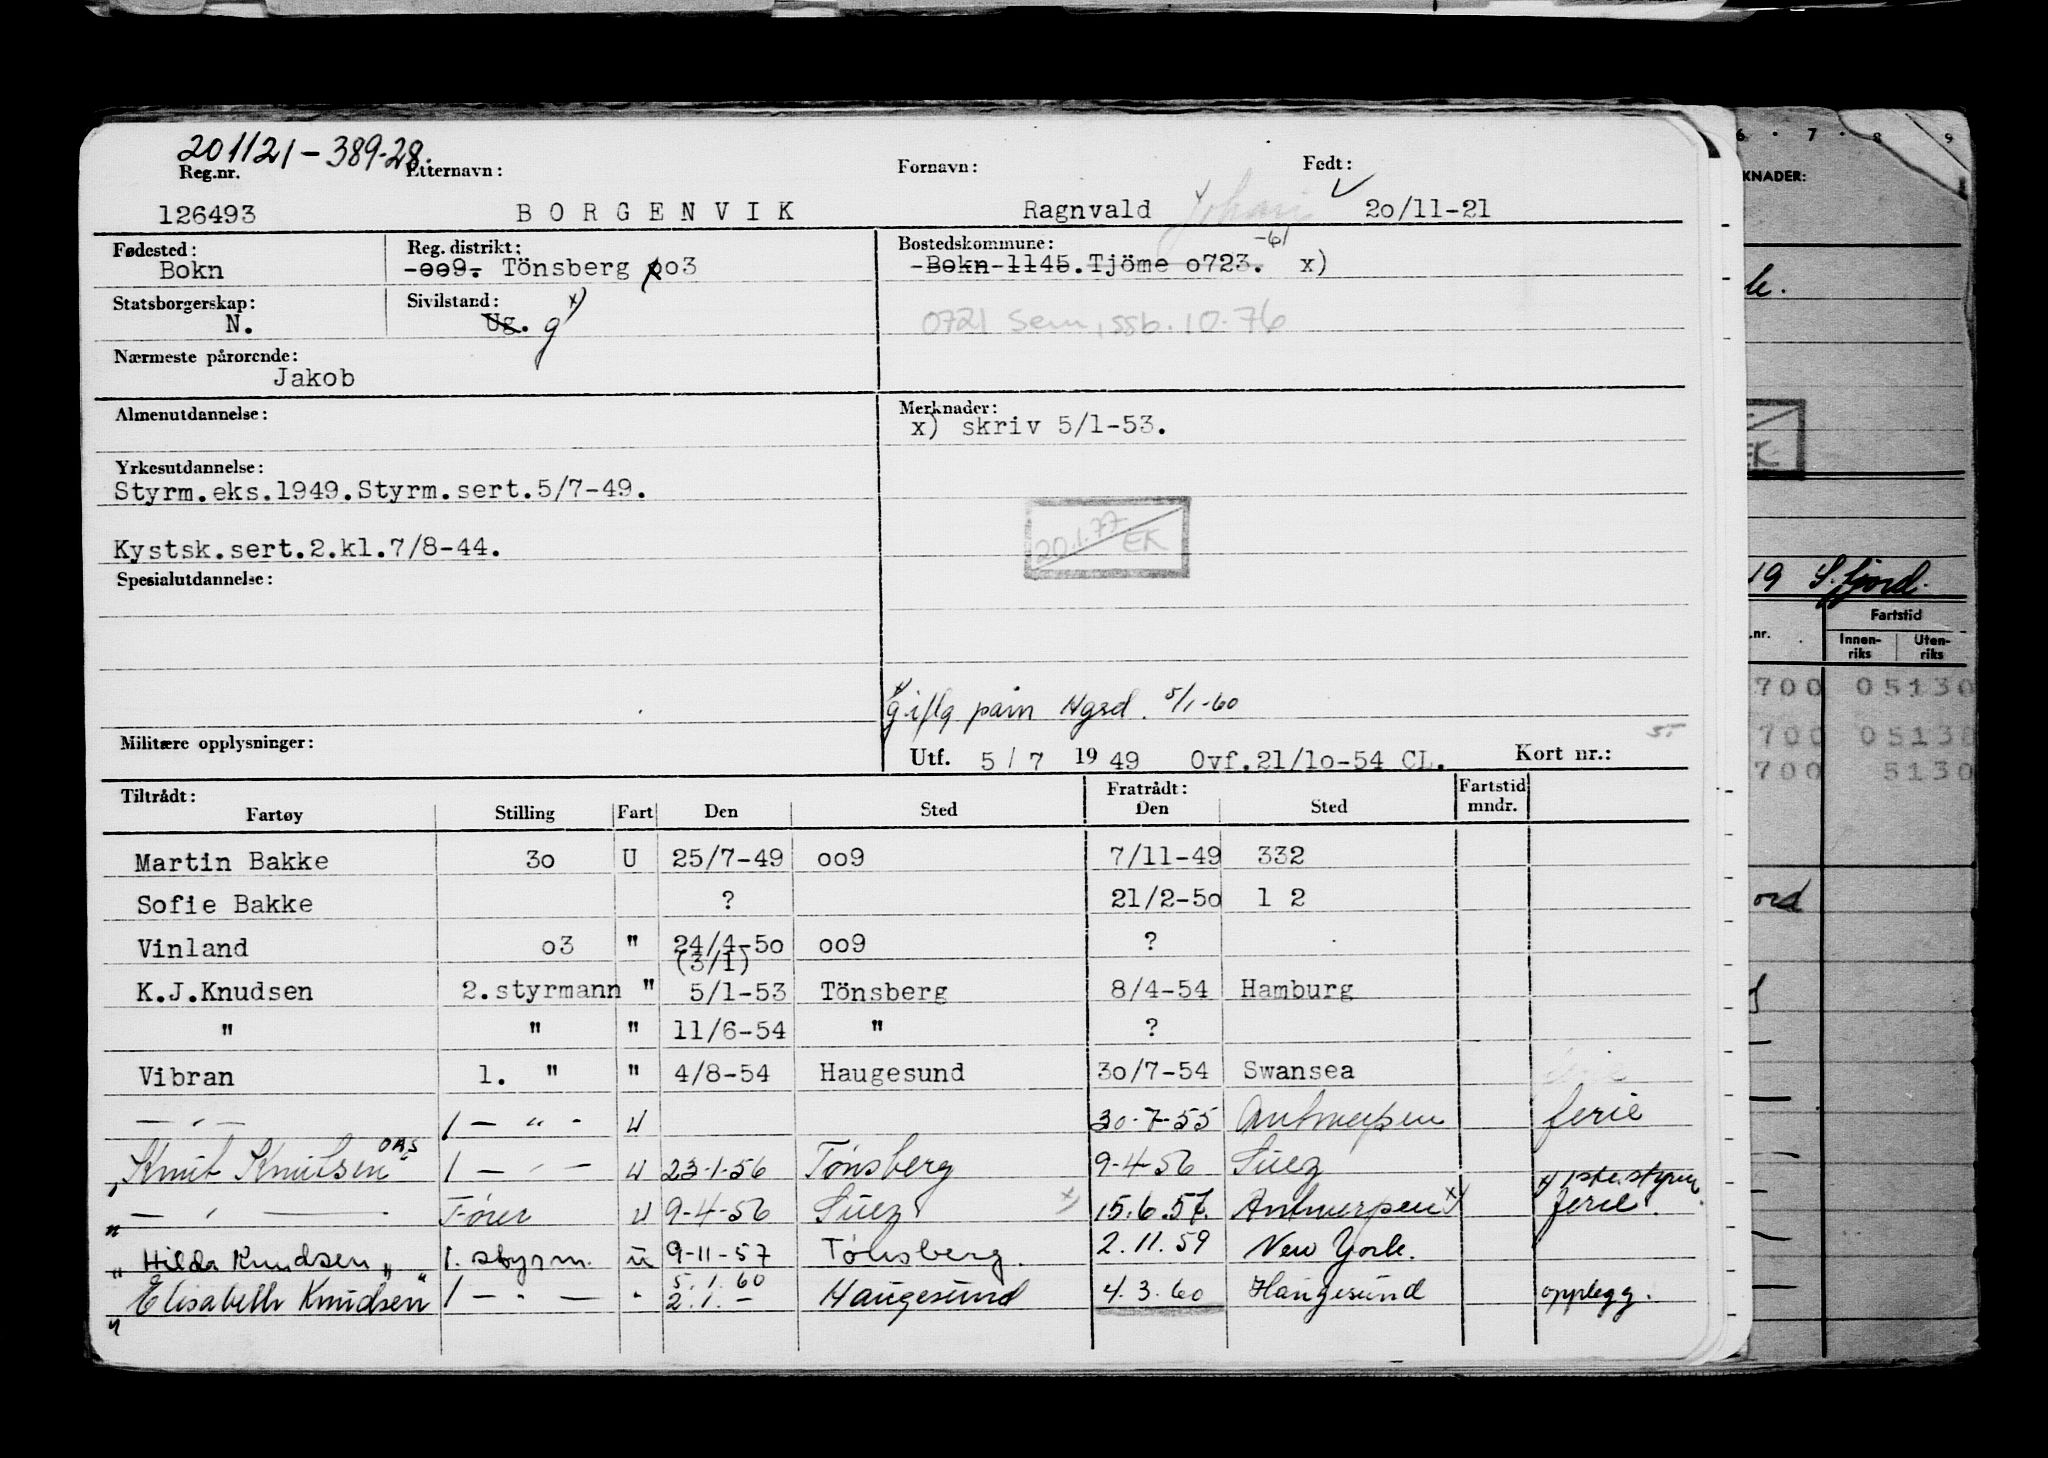 201121-389-28.
Reg.nr. Etternavn: Fornavn: Født:
126493 BORGENVIK Ragnvald Johan 20/11-21
Fødested: Reg. distrikt: Bostedskommune:
Bokn -009. Tönsberg 003 -Bokn-1145. Tjöme 0723. -61 x)
Statsborgerskap: Sivilstand:
N. Ug. g x)
0721 Sem, ssb. 10-76
Nærmeste pårørende:
Jakob
Almenutdannelse: Merknader:
x) skriv 5/1-53.
Yrkesutdannelse:
Styrm.eks.1949.Styrm.sert.5/7-49.
20.1.77 EK
Kystsk.sert.2.kl.7/8-44.
Spesialutdannelse:
x) giftg påm Hgsd. 5/1-60
Militære opplysninger:
Utf. 5/7 1949 Ovf.21/10-54 CL. Kort nr.:
Tiltrådt: Fratrådt: Fartstid
Fartøy Stilling Fart Den Sted Den Sted mndr.
Martin Bakke 3o U 25/7-49 009 7/11-49 332
Sofie Bakke ? 21/2-50 1 2
Vinland 03 " 24/4-50 009 ?
(3/1)
K.J.Knudsen 2.styrmann " 5/1-53 Tönsberg 8/4-54 Hamburg
" " " 11/6-54 " ?
Vibran 1. " " 4/8-54 Haugesund 30/7-54 Swansea
— " — 1 — " - U 30-7-55 Antwerpen ferie
"Knut Knutsen OAS" 1 — " — U 23-1-56 Tönsberg 9-4-56 Suez
x) 1ste styrm.
" — " — Fører U 9-4-56 Suez x) 15.6.57. Antwerpen x) ferie.
"Hilda Knudsen" 1. styrm. u 9-11-57 Tönsberg. 2.11.59 New York.
5.1.60
"Elisabeth Knudsen" 1 — " — " 2.1.— Haugesund 4.3.60 Haugesund opplegg.
6 · 7 · 8 9
KNADER:
19 S.fjord.
.nr. Fartstid
Innen-riks Uten-riks
700 05130
700 05130
700 5130